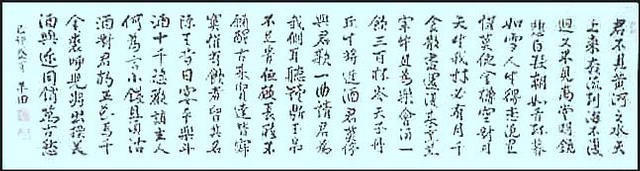 君不見黃河之水天
上來奔流到海不復
迴又不見高堂明鏡
悲白髮朝如青絲暮
如雪人生得意須盡
懽莫使金樽空對月
天生我材必有用千
金散盡還復來烹羊
宰牛且為樂會須一
飲三百杯岑夫子丹
丘生將進酒君莫停
與君歌一曲請君為
我側耳聽鐘鼎玉帛
不足貴但願長醉不
願醒古來賢達皆寂
寞惟有飲者留其名
陳王昔日宴平樂斗
酒十千恣歡謔主人
何為言少錢且須沽
酒對君酌五花馬千
金裘呼兒將出換美
酒與爾同銷萬古愁
己卯